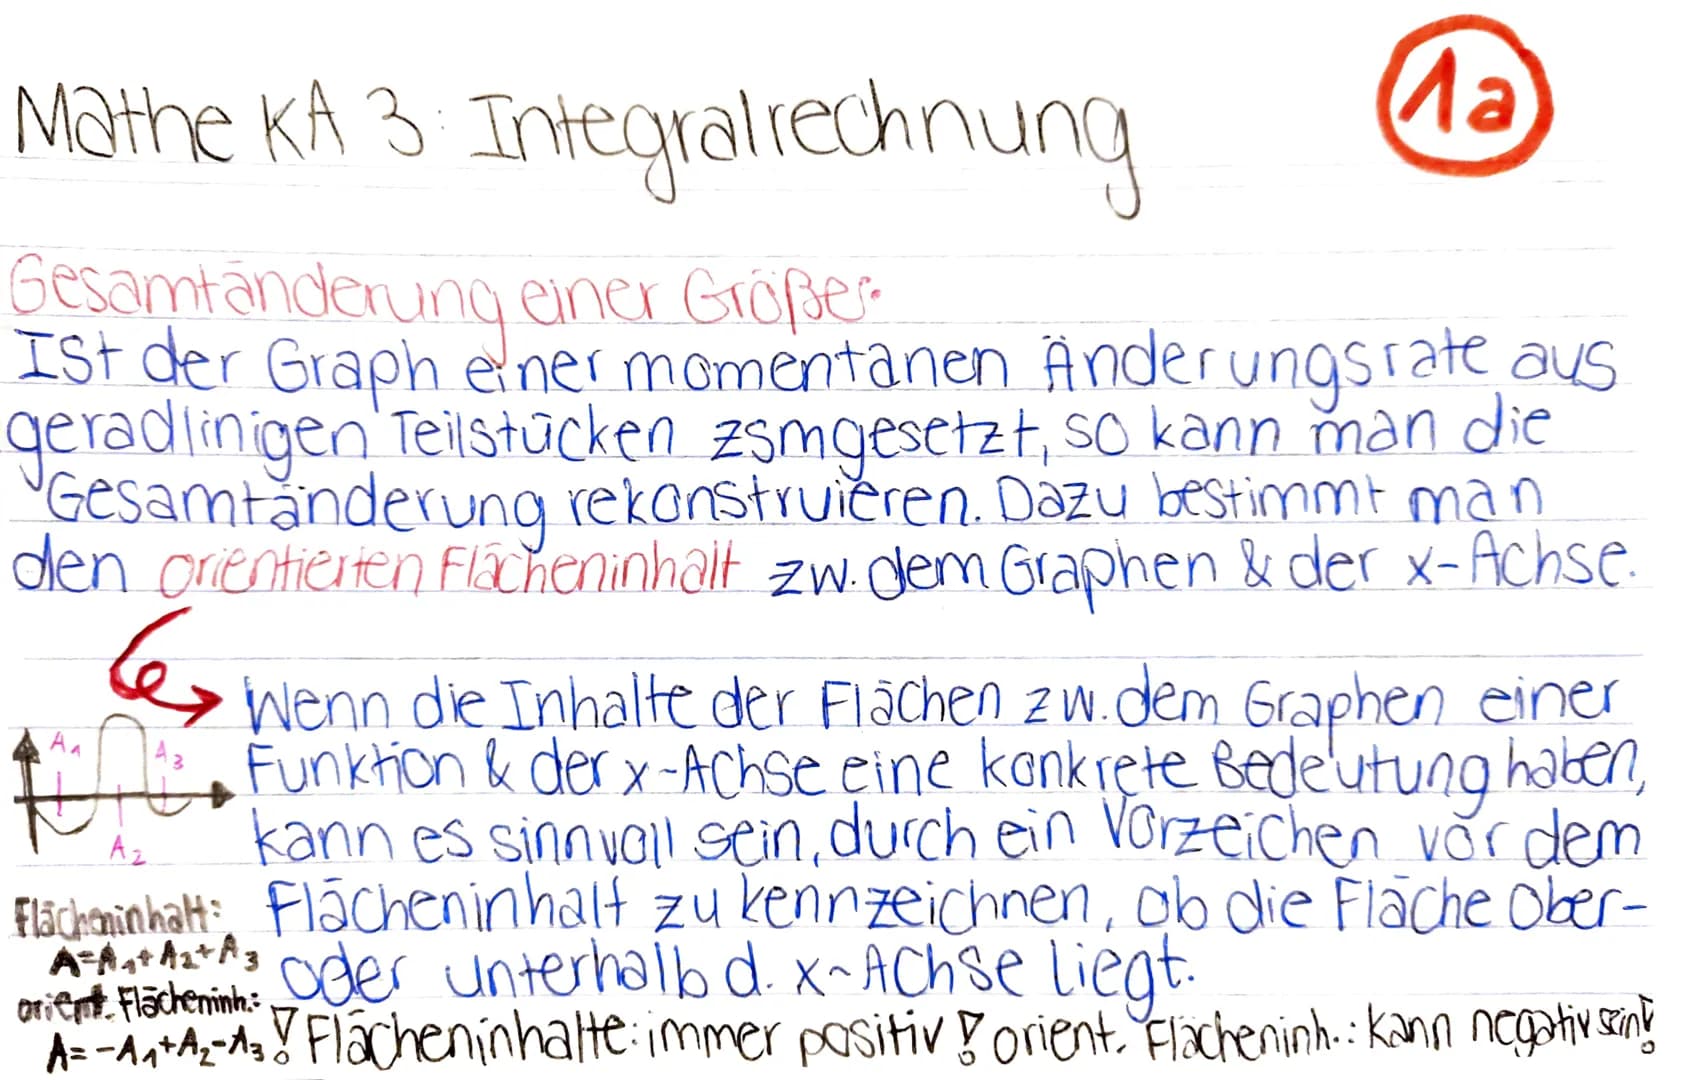 1a
Mathe KA 3: Integralrechnung
Gesamtänderung einer Größe:
Ist der Graph einer momentanen Änderungsrate aus
geradlinigen Teilstücken zsmgesetzt, so kann man die
Gesamtänderung rekonstruieren. Dazu bestimmt man
den orientierten Flächeninhalt zw. dem Graphen & der x-Achse.
Wenn die Inhalte der Flächen zw. dem Graphen einer
Funktion & der x-Achse eine konkrete Bedeutung haben,
kann es sinnvoll sein, durch ein Vorzeichen vor dem
Flächeninhalt zu kennzeichnen, ob die Fläche ober-
oder unterhalb d. x-Achse liegt.
A₁
A₃
A₂
Flächeninhalt:
A=A₁+A₂+A₃
orient. Flächeninh.:
A=-A₁+A₂-A₃
! Flächeninhalte: immer positiv ! orient. Flächeninh.: kann negativ sein!